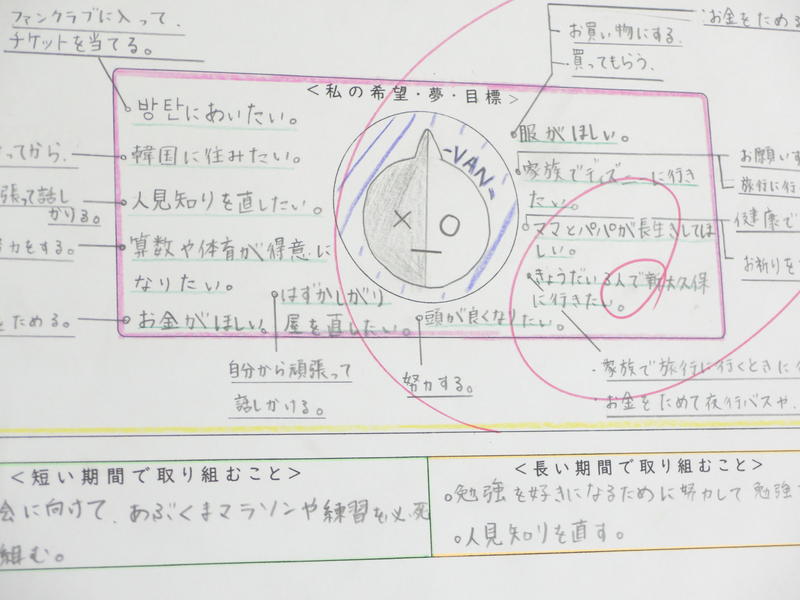 ファンクラブに入って、
チケットを当てる。
お買い物にする。
買ってもらう。
お金をためる
<私の希望・夢・目標>
방탄にあいたい。
韓国に住みたい。
人見知りを直したい。
算数や体育が得意に
なりたい。
お金がほしい。
はずかしがり
屋を直したい。
頭が良くなりたい。
-VAN-
服がほしい。
家族でディズニーに行き
たい。
ママとパパが長生きしてほ
しい。
きょうだい3人で新大久保
に行きたい。
ってから、
張って話し
かける。
力をする。
ためる。
お願いす
旅行に行
健康で
お祈りを
自分から頑張って
話しかける。
努力する。
・家族で旅行に行くときに
・お金をためて夜行バスや、
<短い期間で取り組むこと>
会に向けて、あぶくまマラソンや練習を必死
組む。
<長い期間で取り組むこと>
勉強を好きになるために努力して勉強
人見知りを直す。